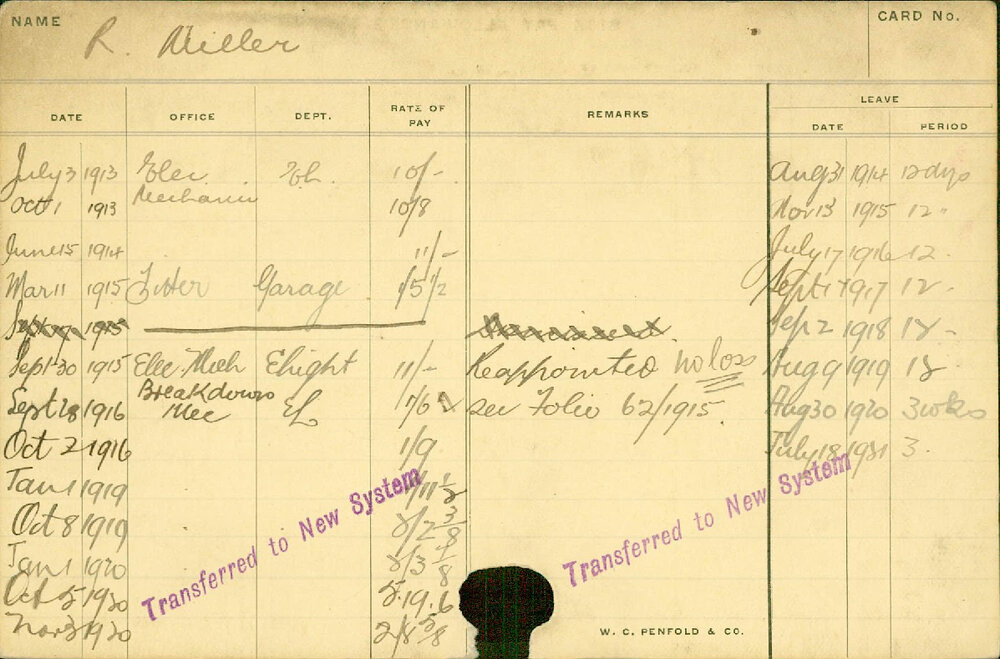 NAME R. Miller CARD No.
DATE OFFICE DEPT. RATE OF PAY REMARKS LEAVE
DATE PERIOD
July 3 1913 Elec. 10/- Aug 31 1914 12 dys
Oct 1 1913 Mechanic 10/8 Nov 13 1915 12 "
June 15 1914 11/- July 17 1916 12.
Mar 11 1915 Fitter Garage 1/5 1/2 Sept 1 1917 12 -
1915 Sep 2 1918 18 -
Sept 30 1915 Elec Mech Elight 11/- Reappointed no loss Aug 9 1919 18
Sept 28 1916 Breakdown Mec EL 1/6 see Folio 62/1915 Aug 30 1920 3 wks
Oct 2 1916 1/9 July 18 1921 3.
Jan 1 1919 1/11 1/2
Oct 8 1919 2/2 3/8
Jan 1 1920 2/3 1/8
Oct 5 1920 5.19.6
Nov 3 1920 2/8 5/8
Transferred to New System
Transferred to New System
W. C. PENFOLD & CO.